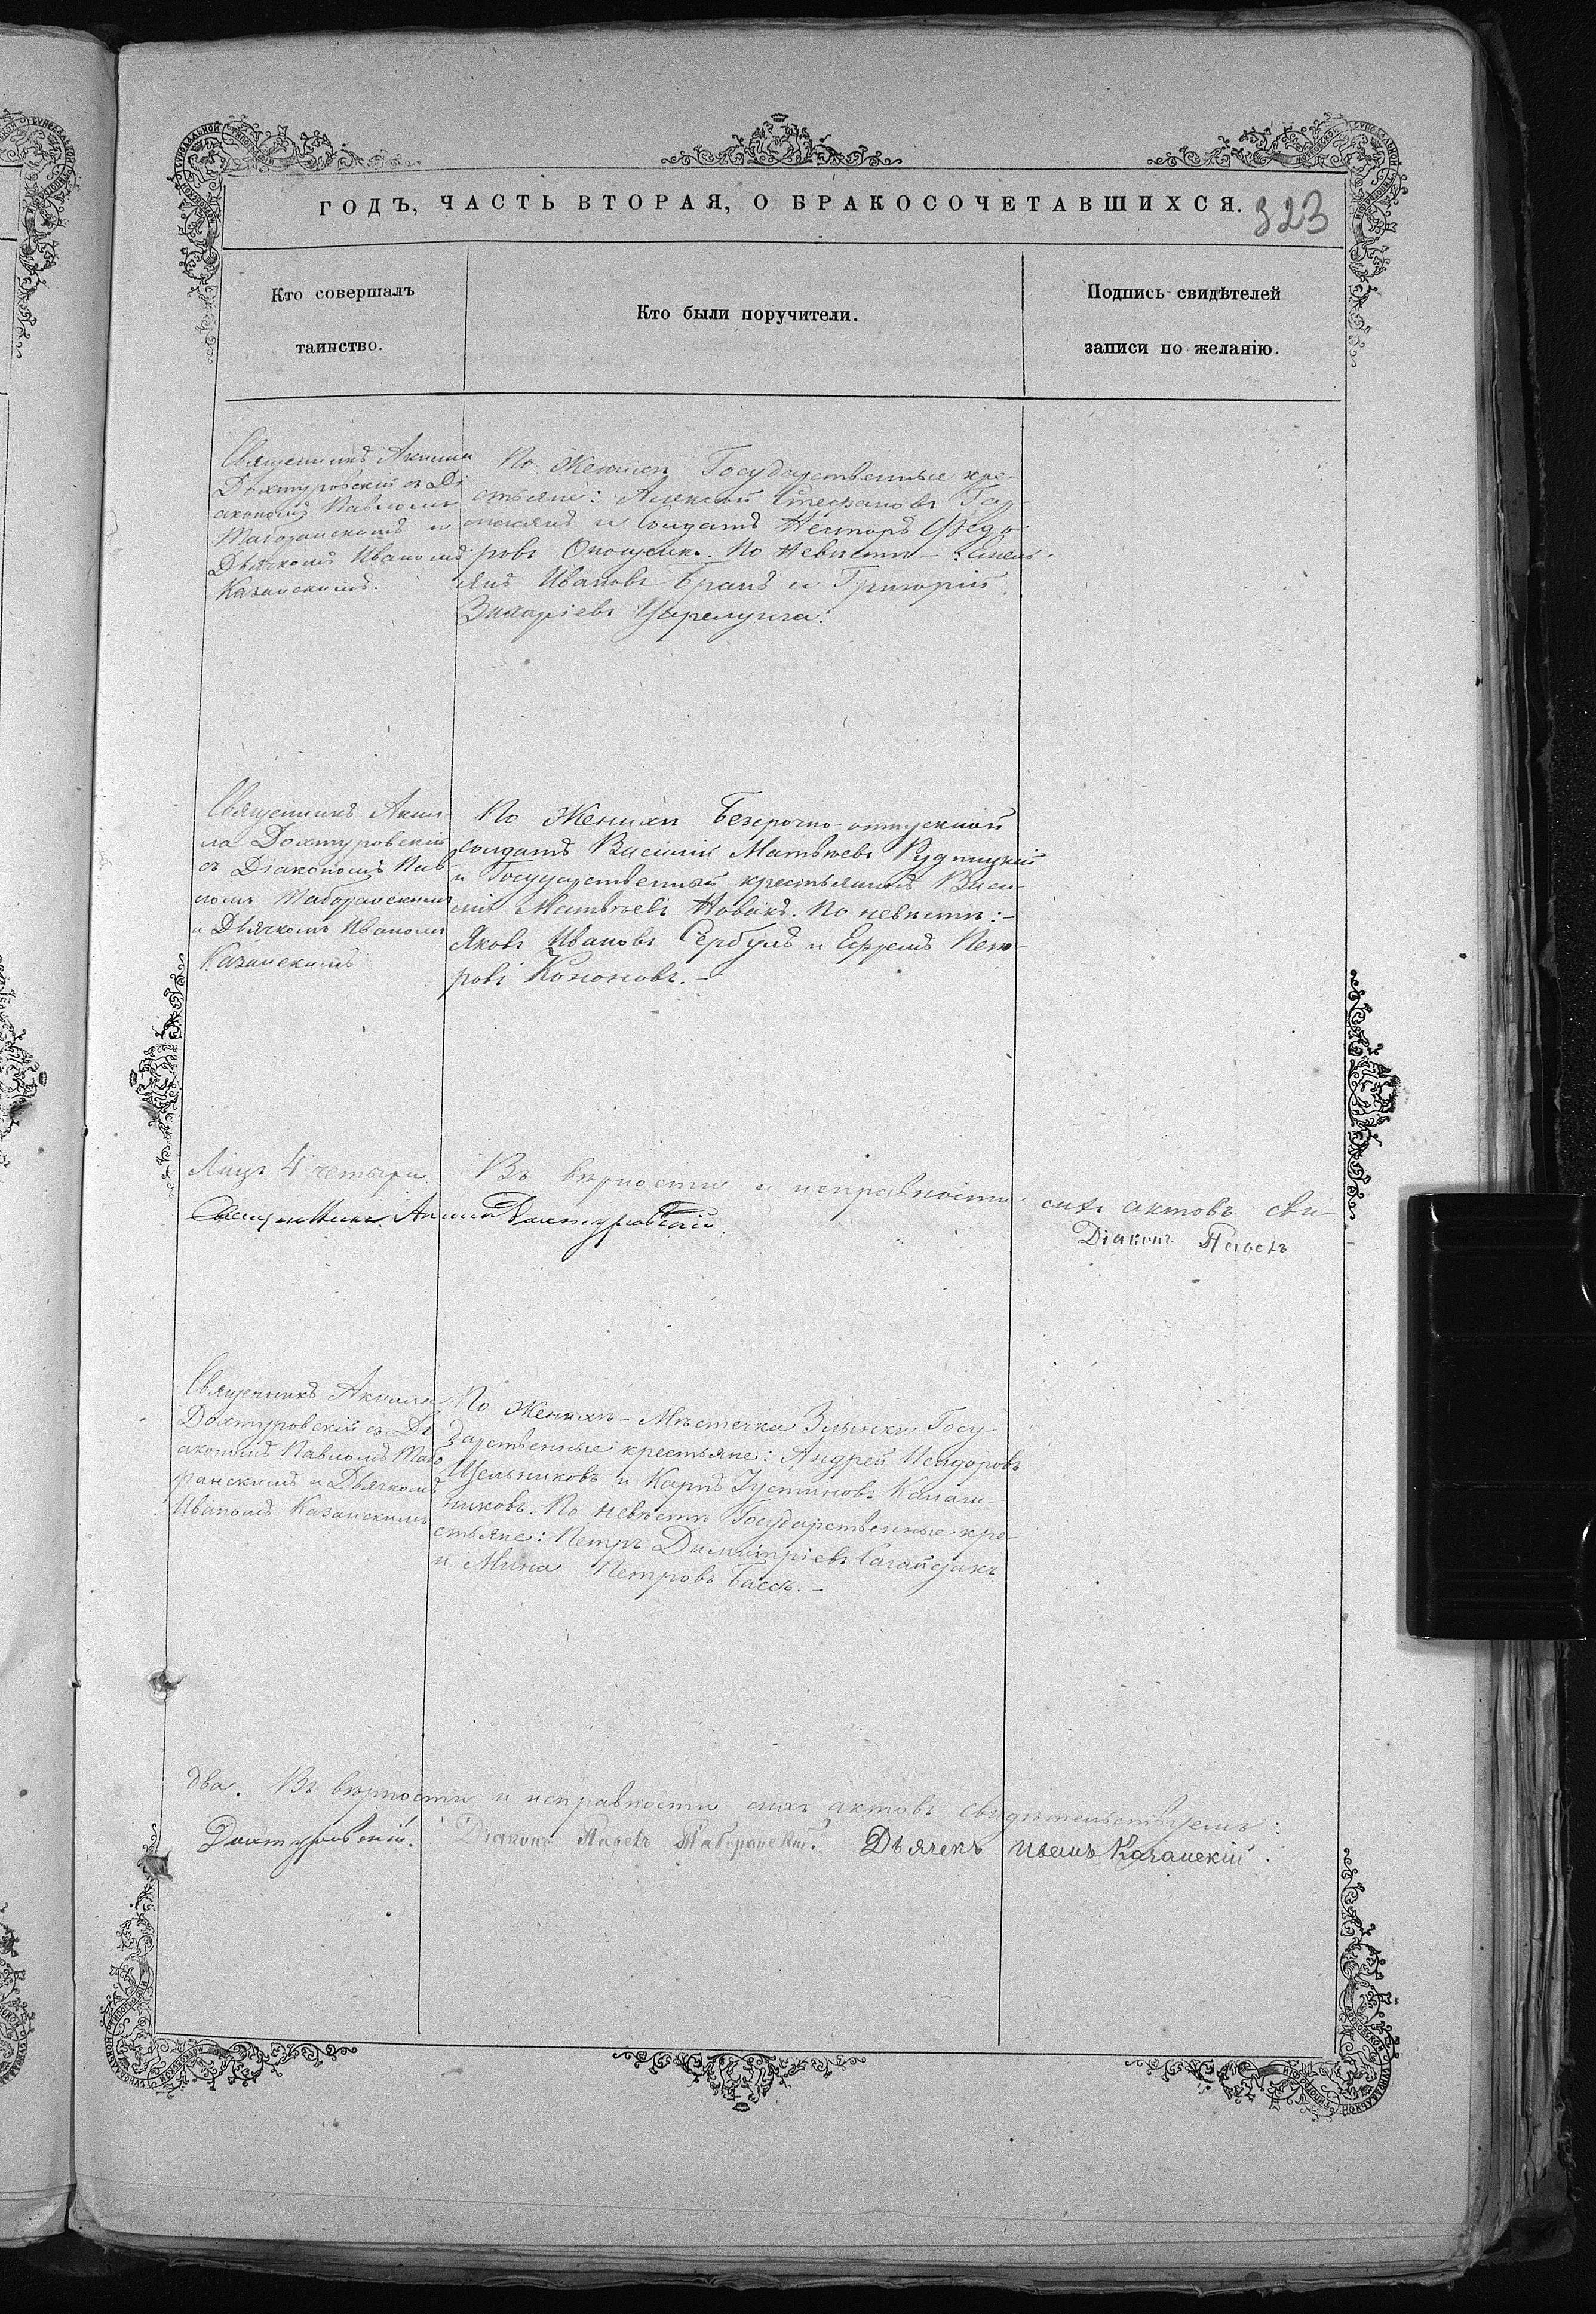 ГОДЪ, ЧАСТЬ ВТОРАЯ, О БРАКОСОЧЕТАВШИХСЯ.
323
Кто совершалъ
таинство.
Кто были поручители.
Подпись свидѣтелей
записи по желанію.
Священникъ Акила
Дохтуровскій съ Ді
акономъ Павломъ
Таборанскимъ и
Дьячкомъ Иваномъ
Казанскимъ.
По Женихѣ Государственные кре-
стьяне: Алексѣй Стефановъ
и Солдатъ Несторъ Ѳедо-
ровъ По Невѣстѣ – Емель-
янъ Ивановъ и Григорій
Захаріевъ
Священникъ Аки-
ла Дохтуровскій
съ Діакономъ Пав
ломъ Таборанскимъ
и Дьячкомъ Иваномъ
Казанскимъ
По Женихѣ Безсрочно-отпускной
солдатъ Василій Матвѣевъ Рудницкій
и Государственный крестьянинъ Васи-
лій Матвѣевъ Новакъ. По невѣстѣ: –
Яковъ Ивановъ Сербулъ и Ефремъ Пет-
ровъ Кононовъ. –
Лицъ 4 четыри. Въ вѣрности и исправности сихъ актовъ сви-
Священникъ Акила Дохтуровскій. Діаконъ Павелъ
Священникъ Акила
Дохтуровскій съ Ді
акономъ Павломъ Табо
ранскимъ и Дьячкомъ
Иваномъ Казанскимъ
По Женихѣ – Мѣстечка Злынки Госу-
дарственные крестьяне: Андрей Исидоровъ
Щельниковъ и Карпъ Іустиновъ Калаш-
никовъ. По невѣстѣ Государственные кре-
стьяне: Петръ Димитріевъ Сагайдакъ
и Мина Петровъ Бассъ. –
два. Въ вѣрности и исправности сихъ актовъ свидѣтельствуемъ:
Дохтуровскій. Діаконъ Павелъ Таборанскій. Дьячекъ Иванъ Казанскій.